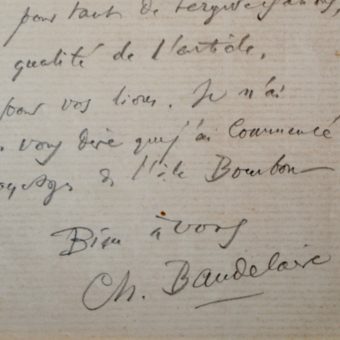 pour tant de tergiversations,
qualité de l'article,
pour vos lions. Je n'ai
vous dire que j'ai commencé
de l'île Bourbon
Bien à vous
Ch. Baudelaire